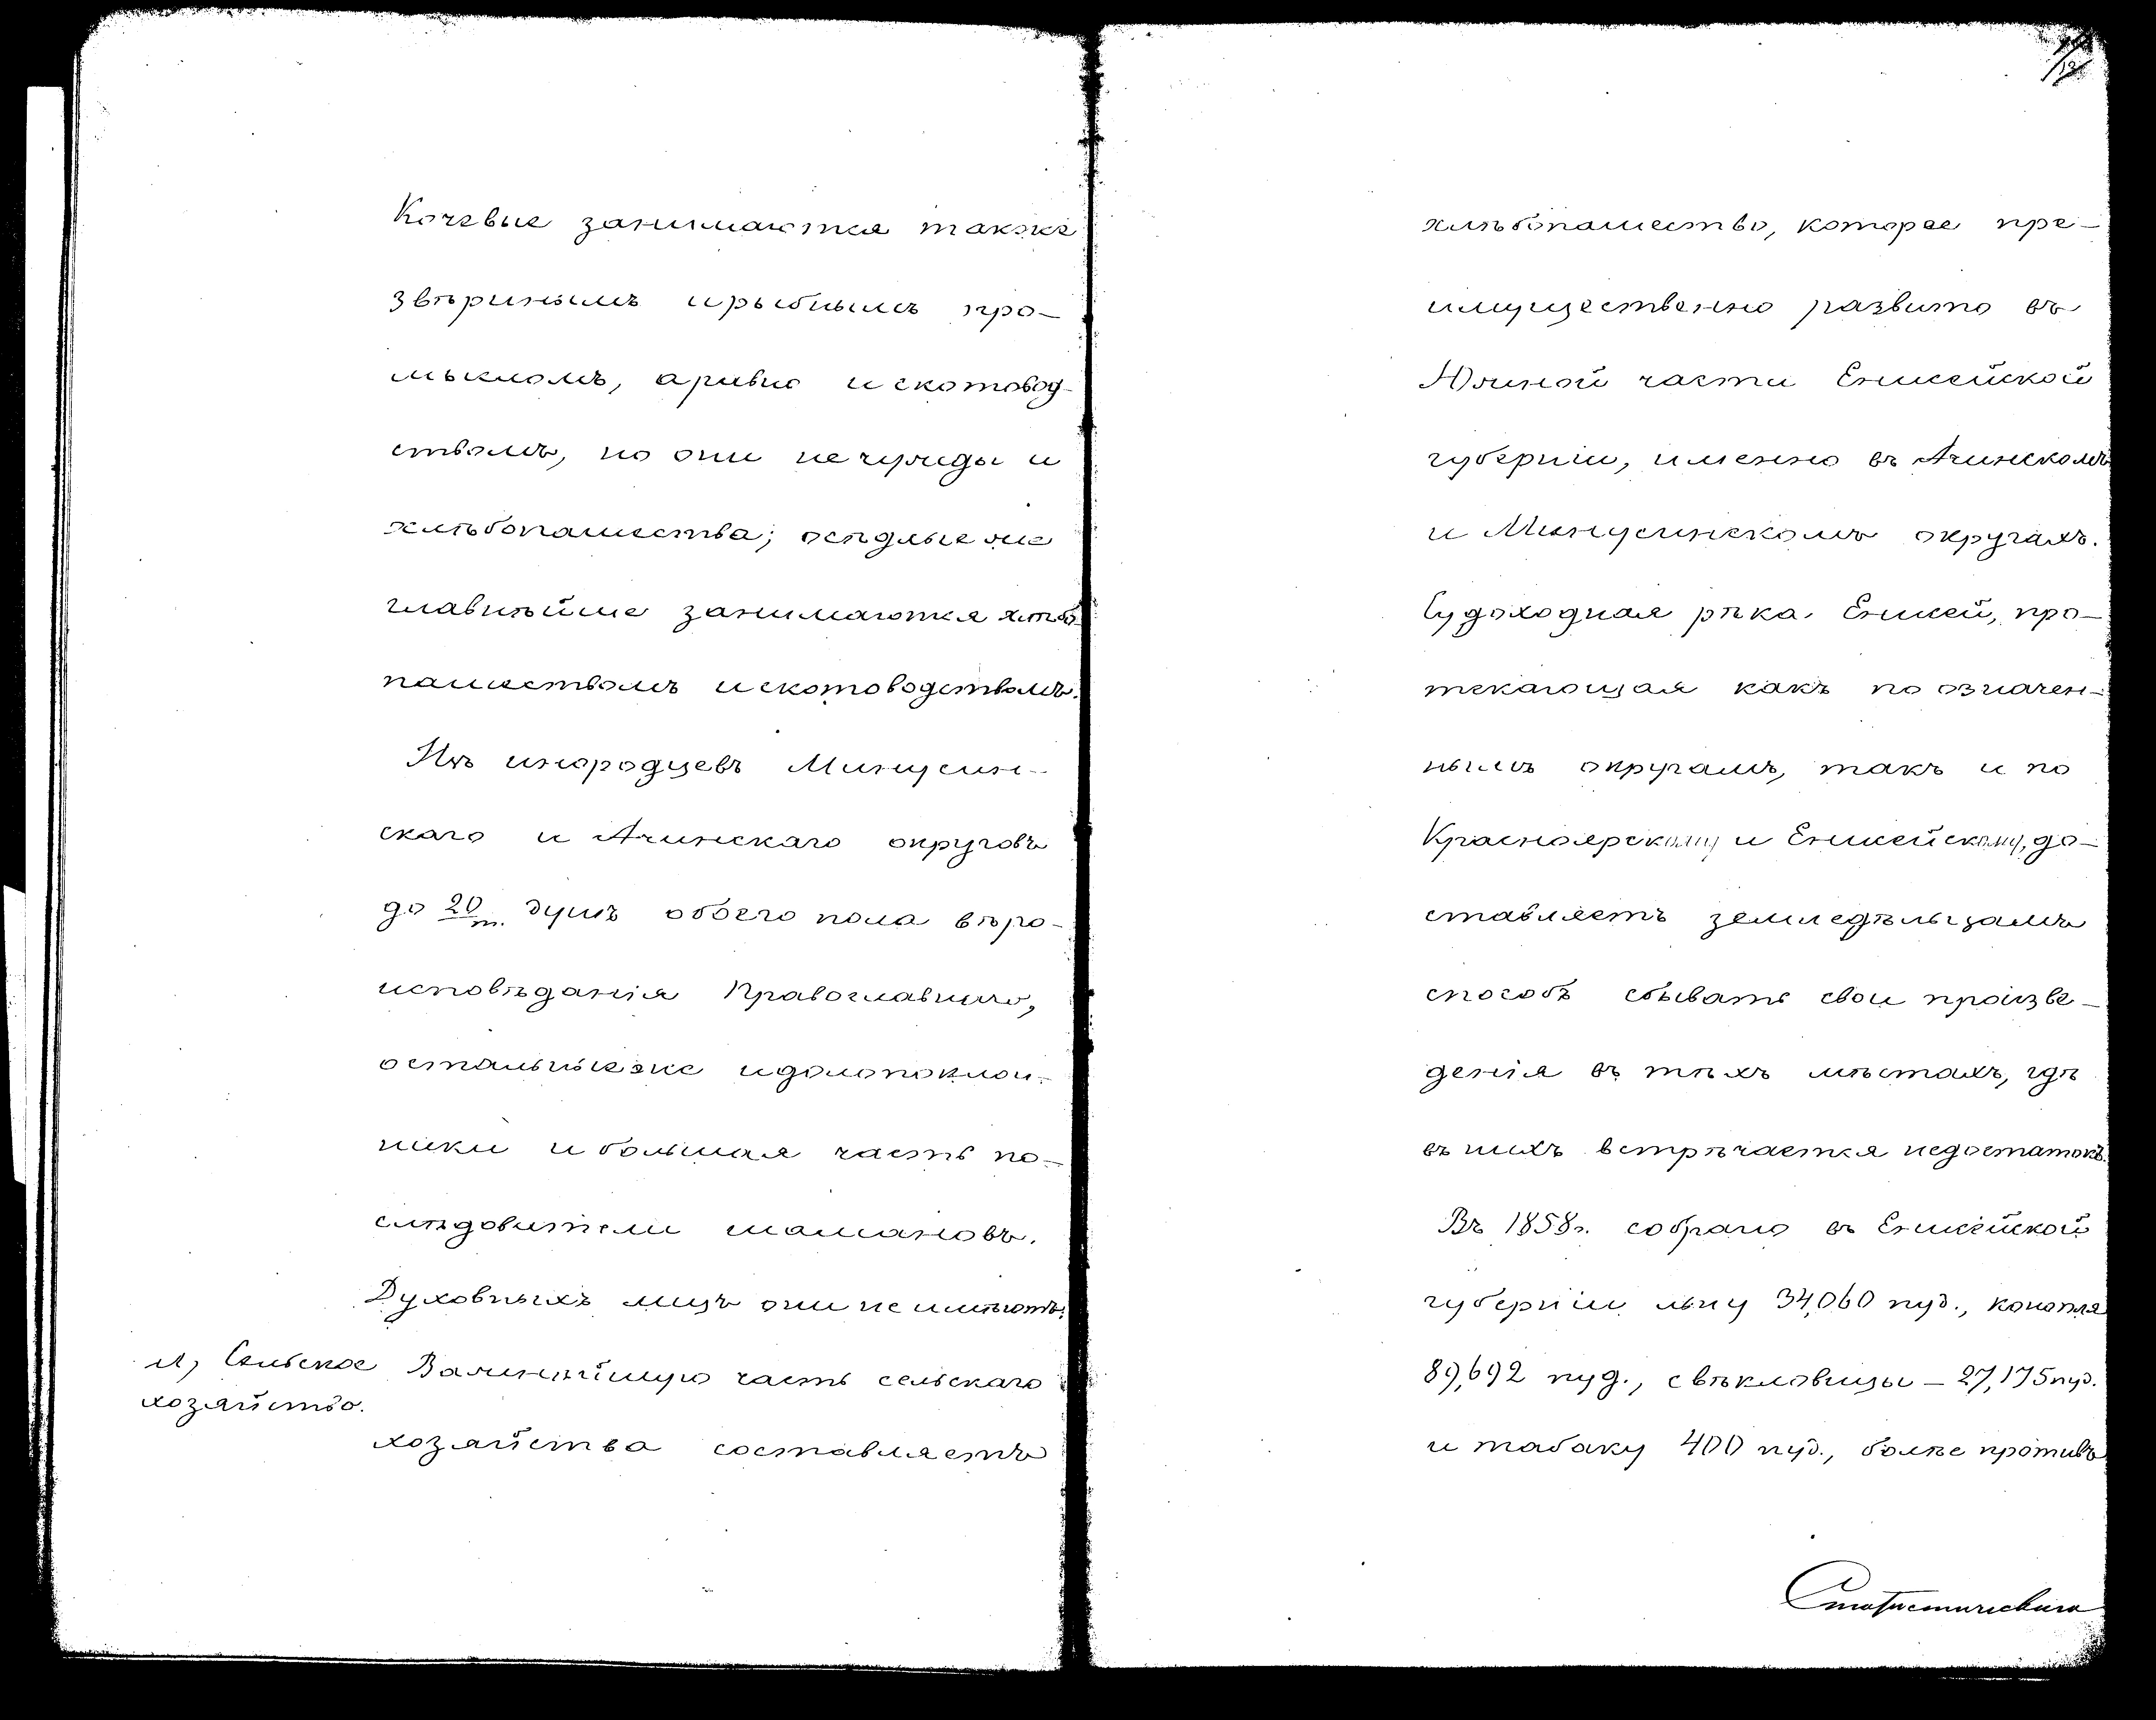 Кочевые занимаются также
звѣринымъ и рыбнымъ про-
мысломъ, а равно и скотовод-
ствомъ, но они не чужды и
хлѣбопашества; осѣдлые же
главнѣйше занимаются хлѣбо-
пашествомъ и скотоводствомъ.
Изъ инородцевъ Минусин-
скаго и Ачинскаго округовъ
до 20 т. душъ обоего пола вѣро-
исповѣданія Православнаго,
остальные же идолопоклон-
ники и большая часть по-
слѣдователи шамановъ.
Духовныхъ лицъ они не имѣютъ.
л, Сельское
хозяйство.
Важнѣйшую часть сельскаго
хозяйства составляетъ
хлѣбопашество, которое пре-
имущественно развито въ
Южной части Енисейской
губерніи, именно въ Ачинскомъ
и Минусинскомъ округахъ.
Судоходная рѣка Енисей, про-
текающая какъ по означен-
нымъ округамъ, такъ и по
Красноярскому и Енисейскому, до-
ставляетъ земледѣльцамъ
способъ сбывать свои произве-
денія въ тѣхъ мѣстахъ, гдѣ
въ нихъ встрѣчается недостатокъ.
Въ 1858 г. собрано въ Енисейской
губерніи льну 34,060 пуд., конопля
89,692 пуд., свѣкловицы – 27,175 пуд.
и табаку 400 пуд., болѣе противъ